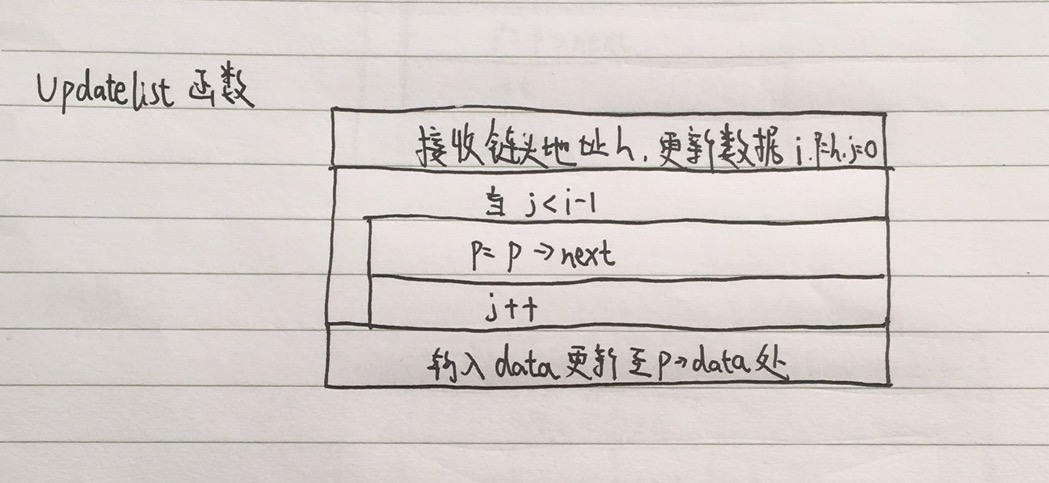 Updatelist 函数
接收链头地址h,更新数据i,p=h,j=0
当 j<i-1
p=p→next
j++
输入data更新至p→data处